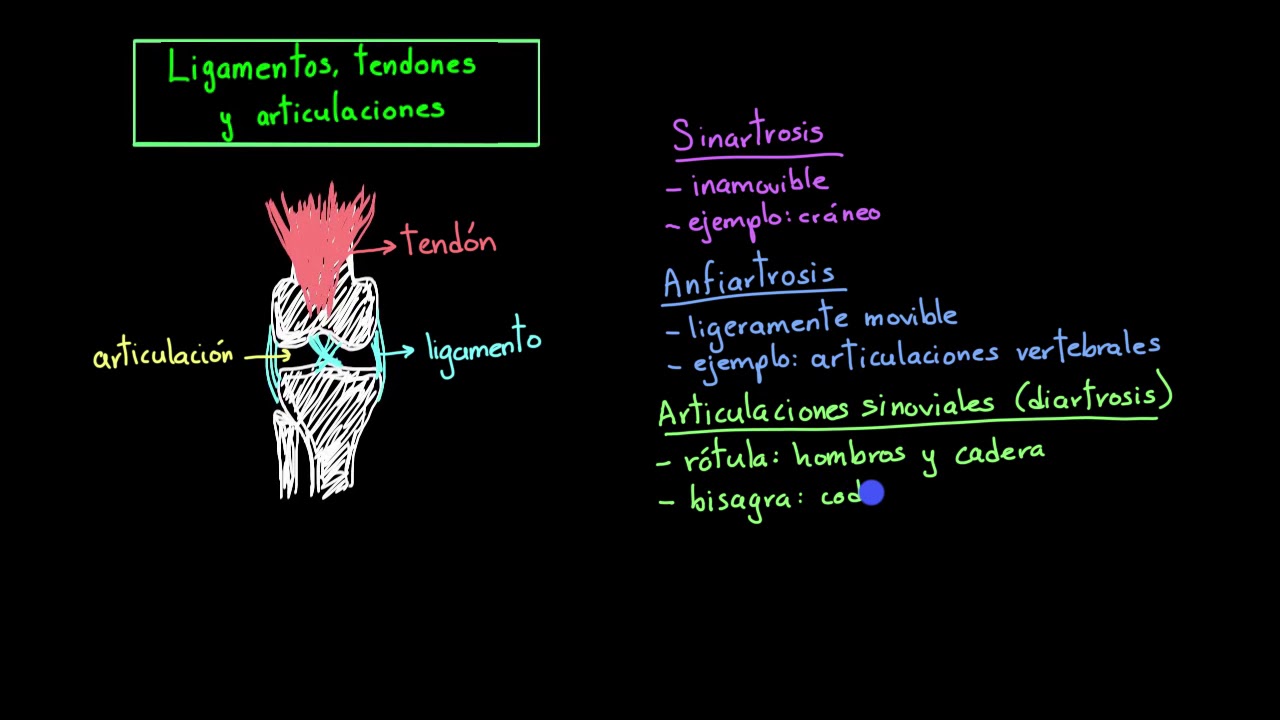 Ligamentos, tendones
y articulaciones
tendón
articulación
ligamento
Sinartrosis
- inamovible
- ejemplo: cráneo
Anfiartrosis
- ligeramente movible
- ejemplo: articulaciones vertebrales
Articulaciones sinoviales (diartrosis)
- rótula: hombros y cadera
- bisagra: cod